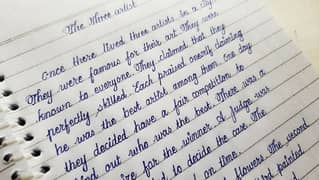 The three artist
Once there lived three artists, in a city.
They were famous for their art. They were
known to everyone. They claimed that they
perfectly skilled. Each praised oneself claiming
he was the best artist among them. One day
they decided have a fair competition to
find out who was the best. There was a
for the winner. A judge was
to decide the case. The
on time.
flowers. The second
painted